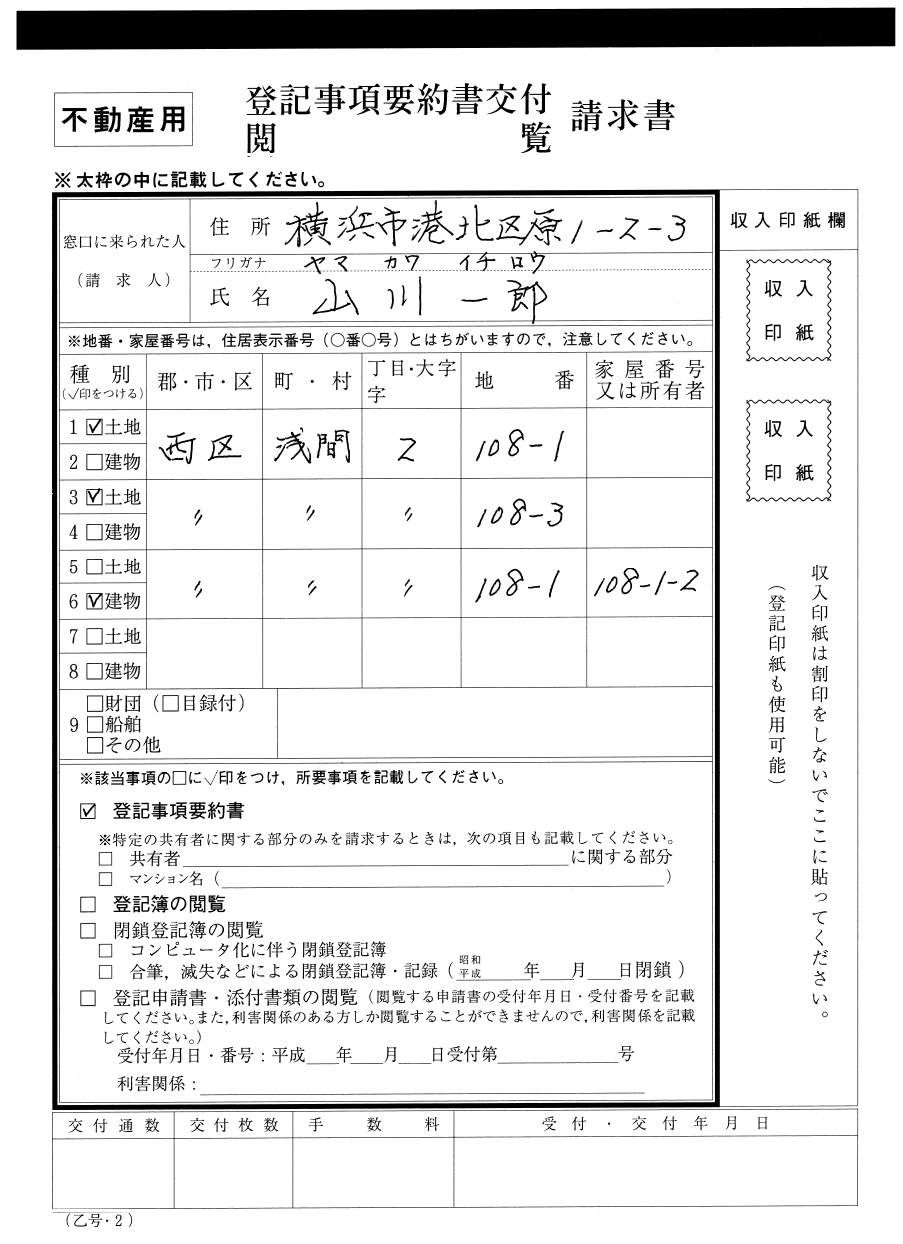 不動産用
登記事項要約書交付
閲覧
請求書
※太枠の中に記載してください。
窓口に来られた人
(請求人)
住所 横浜市港北区原1-2-3
フリガナ ヤマ カワ イチ ロウ
氏名 山川一郎
収入印紙欄
収入
印紙
収入
印紙
収入印紙は割印をしないでここに貼ってください。
(登記印紙も使用可能)
※地番・家屋番号は,住居表示番号(〇番〇号)とはちがいますので,注意してください。
種別
(√印をつける)
郡・市・区
町・村
丁目・大字
字
地番
家屋番号
又は所有者
1 ☑土地
2 □建物
西区 浅間 2 108-1
3 ☑土地
4 □建物
〃 〃 〃 108-3
5 □土地
6 ☑建物
〃 〃 〃 108-1 108-1-2
7 □土地
8 □建物
9 □財団(□目録付)
□船舶
□その他
※該当事項の□に√印をつけ,所要事項を記載してください。
☑ 登記事項要約書
※特定の共有者に関する部分のみを請求するときは,次の項目も記載してください。
□ 共有者 に関する部分
□ マンション名( )
□ 登記簿の閲覧
□ 閉鎖登記簿の閲覧
□ コンピュータ化に伴う閉鎖登記簿
□ 合筆,滅失などによる閉鎖登記簿・記録(昭和 平成 年 月 日閉鎖)
□ 登記申請書・添付書類の閲覧(閲覧する申請書の受付年月日・受付番号を記載
してください。また,利害関係のある方しか閲覧することができませんので,利害関係を記載
してください。)
受付年月日・番号:平成 年 月 日受付第 号
利害関係:
交付通数 交付枚数 手数料 受付・交付年月日
(乙号・2)